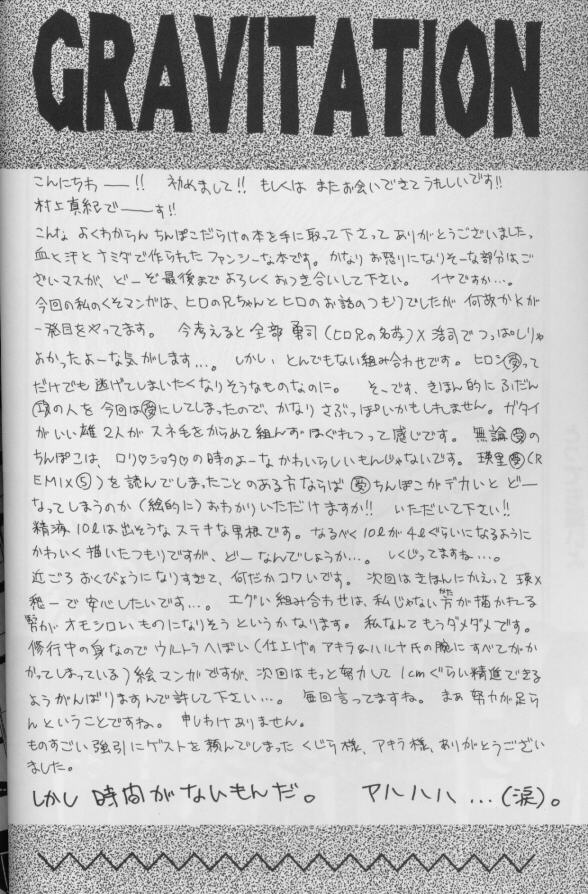 GRAVITATION
こんにちわ――!! 初めまして!! もしくは またお会いできて うれしいです!!
村上真紀で――す!!
こんな よくわからん ちんぽこだらけの本を手に取って下さって ありがとうございました。
血と汗とナミダで作られた ファンシーな本です。かなり お怒りになりそーな部分はご
ざいマスが、どーぞ最後まで よろしくおつき合いして下さい。 イヤですか…。
今回の私のくそマンガは、ヒロの兄ちゃんとヒロのお話のつもりでしたが 何故かKが
一発目をやってます。 今考えると 全部 勇司(ヒロ兄の名前)×浩司で つっぱしりゃ
よかったよーな気がします…。 しかし とんでもない組み合わせです。ヒロシ受って
だけでも 逃げてしまいたくなりそうなものなのに。 そ、です、きほん的に ふだん
攻の人を 今回は受にしてしまったので、かなり さぶっぽいかもしれません。ガタイ
がいい雄2人が スネ毛をからめて組んず ほぐれつって感じです。無論受の
ちんぽこは、ロリ♡ショタ♡の時のよーな かわいらしいもんじゃないです。瑛里受(R
EMIX⑤)を読んでしまったことのある方ならば 受ちんぽこが デカいと どー
なってしまうのか(絵的に)おわかりいただけますか!! いただいて下さい!!
精液10lは出そうな ステキな男根です。なるべく 10lが 4lぐらいになるように
かわいく描いたつもりですが、どーなんでしょうか…。 しくじってますね…。
近ごろ おくびょうになりすぎて、何だか コワいです。次回は きほんにかえって 瑛×
愁一で 安心したいです…。 エグい組み合わせは、私じゃない が描かれる
が オモシロい ものになりそう というか なります。 私なんて もうダメダメです。
修行中の身なので ウルトラへぼい(仕上げのアキラ&ハルヤ氏の腕にすべてがか
かってしまっている)絵マンガですが、次回は もっと努力して 1cmぐらい精進できる
よう がんばりますんで 許して下さい…。 毎回言ってますね。 まぁ 努力が足ら
んということですね。 申しわけありません。
ものすごい強引にゲストを頼んでしまった くじら様、アキラ様、ありがとうござい
ました。
しかし 時間がないもんだ。 アハハハ…(涙)。